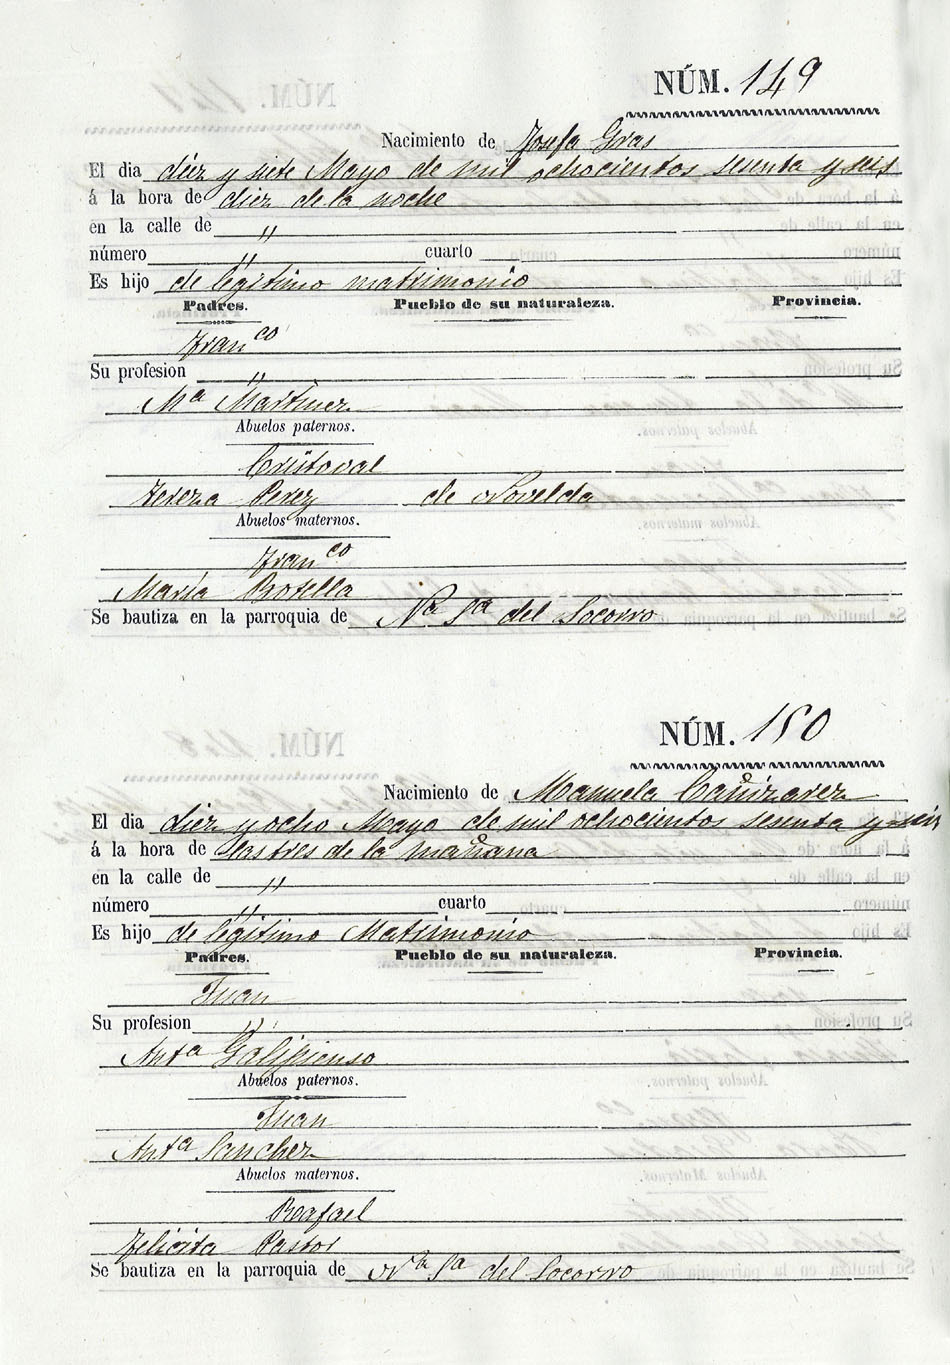 NÚM. 149
Nacimiento de Josefa Gras
El dia diez y siete Mayo de mil ochocientos sesenta y seis
á la hora de diez de la noche
en la calle de "
número " cuarto
Es hijo de legitimo matrimonio
Padres. Pueblo de su naturaleza. Provincia.
Franco
Su profesion "
Ma Martinez
Abuelos paternos.
Cristoval
Tereza Perez de Novelda
Abuelos maternos.
Franco
María Botella
Se bautiza en la parroquia de Na Sa del Socorro
NÚM. 150
Nacimiento de Manuela Cañizarez
El dia diez y ocho Mayo de mil ochocientos sesenta y seis
á la hora de las tres de la mañana
en la calle de "
número " cuarto
Es hijo de legitimo Matrimonio
Padres. Pueblo de su naturaleza. Provincia.
Juan
Su profesion "
Anta Galipienso
Abuelos paternos.
Juan
Anta Sanchez
Abuelos maternos.
Rafael
Felicita Pastor
Se bautiza en la parroquia de Na Sa del Socorro